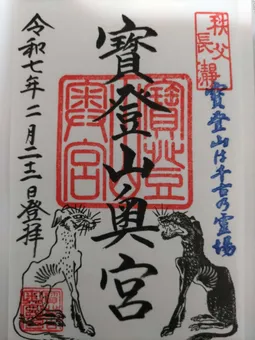 秩父
長瀞
寶登山は千古の霊場
寶登山奥宮
寶登山
奥宮
令和七年二月二十二日登拝